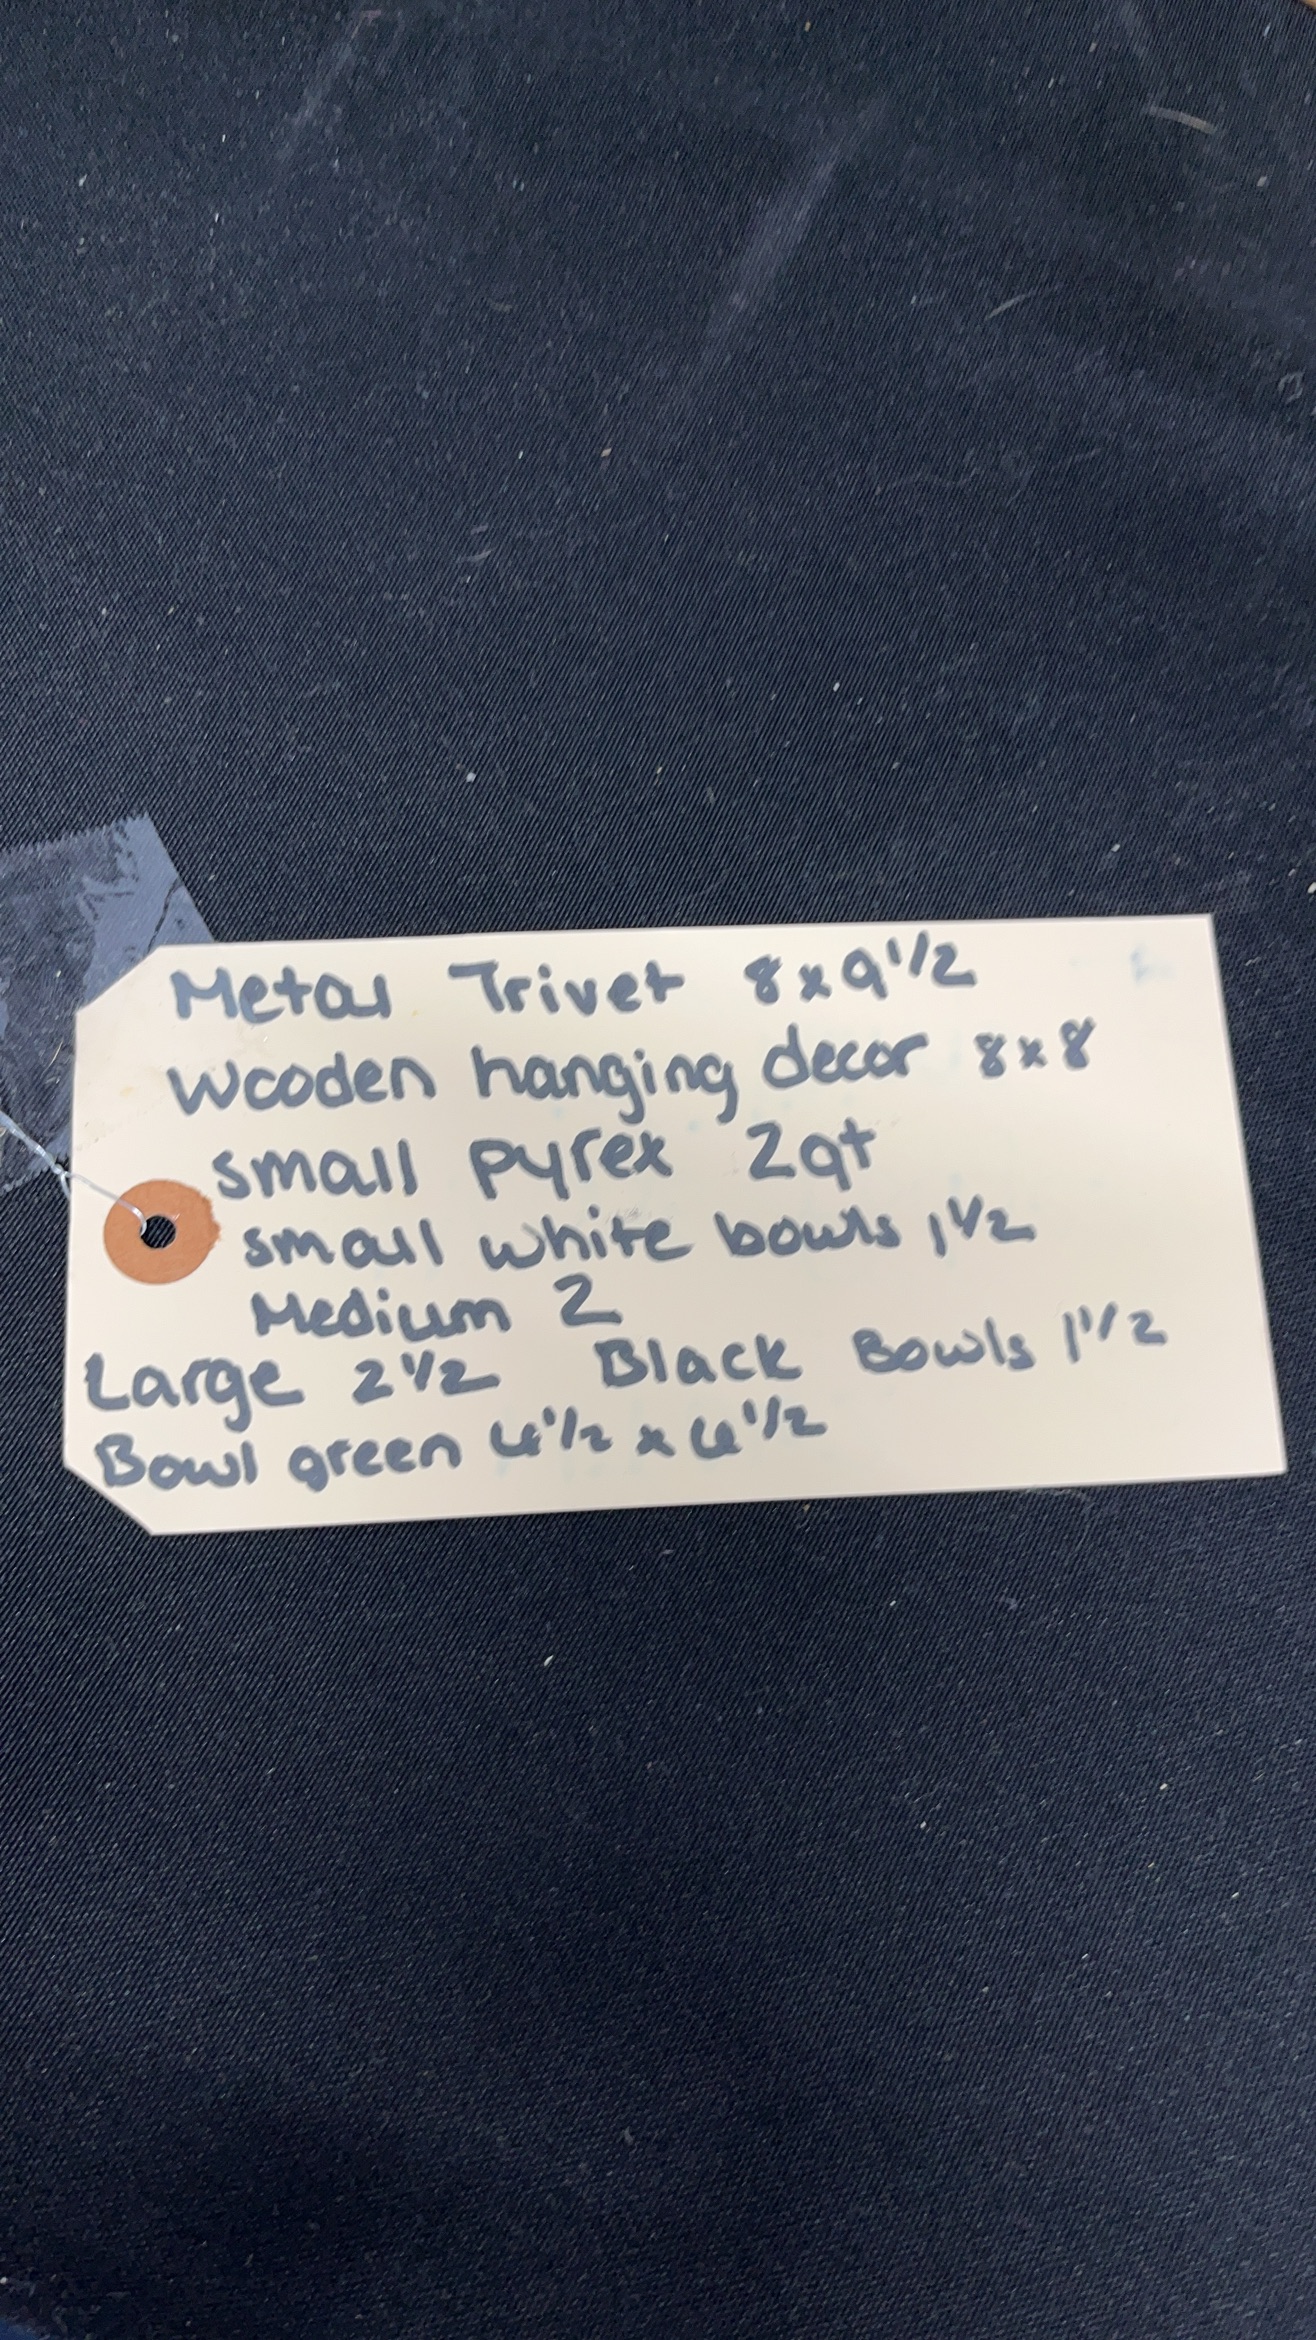 Metal Trivet 8x9 1/2
Wooden hanging decor 8x8
small pyrex 2qt
small white bowls 1 1/2
Medium 2
Large 2 1/2 Black Bowls 1 1/2
Bowl green 6 1/2 x 6 1/2